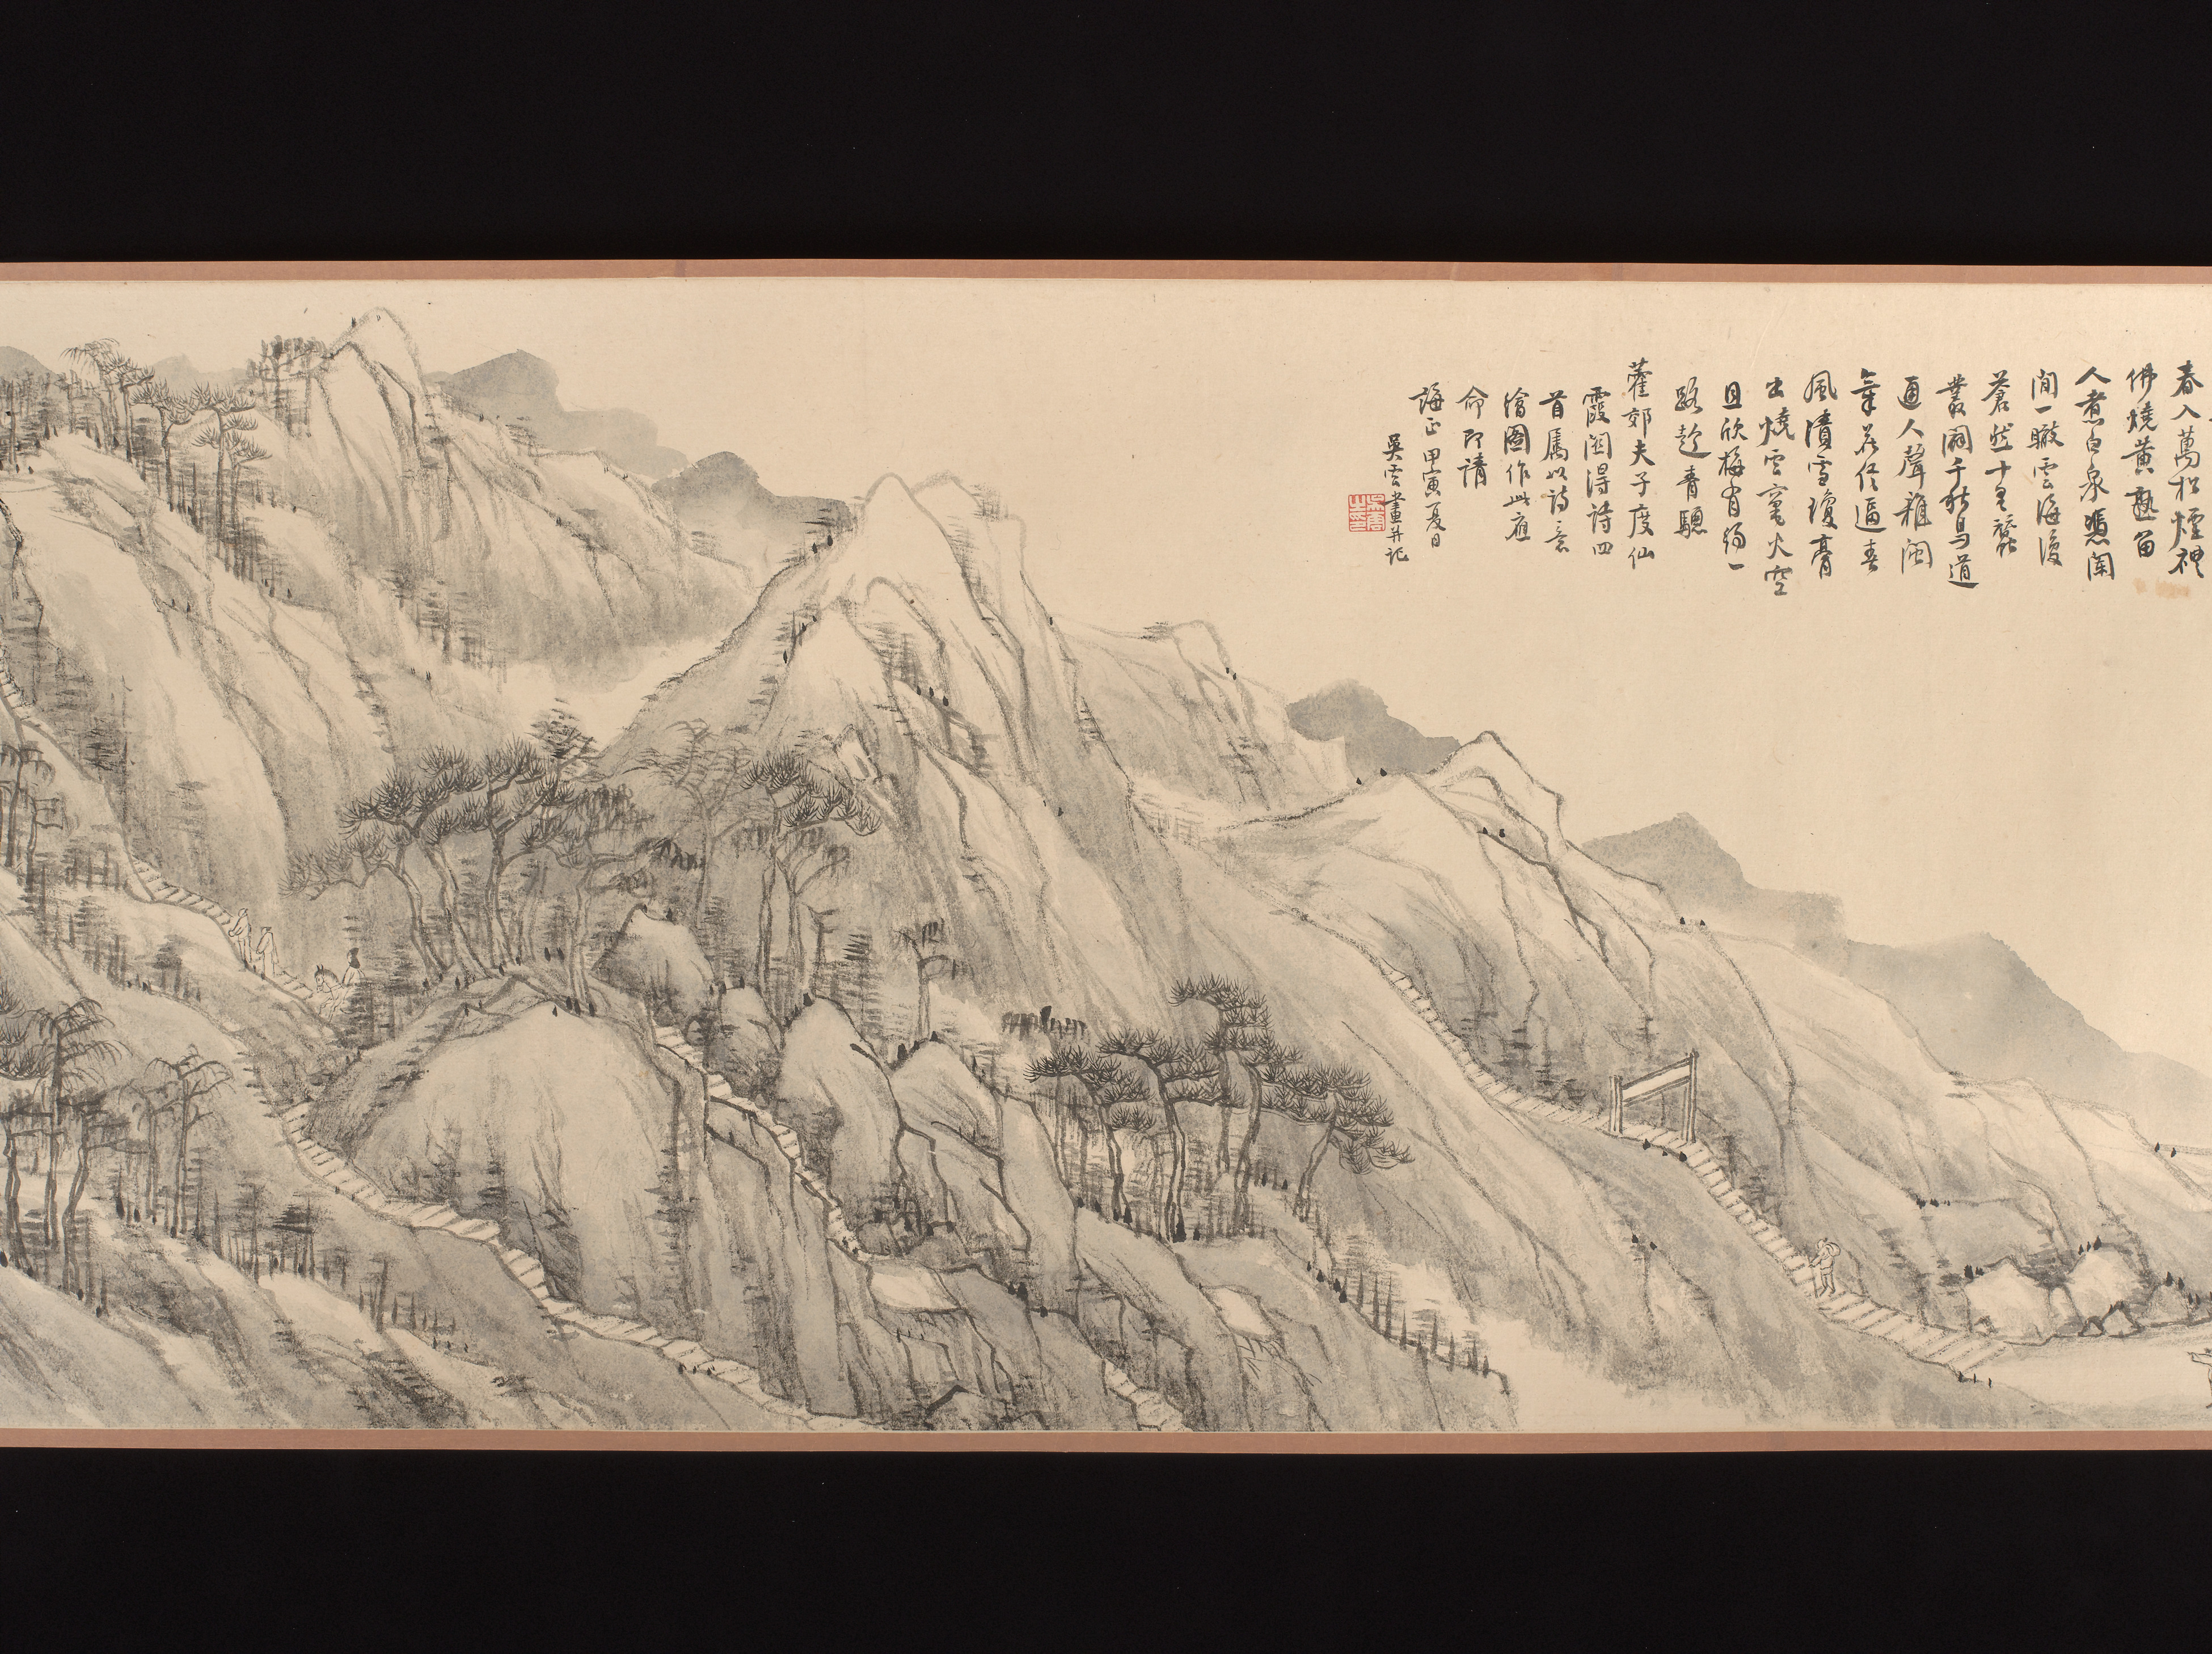 春入萬松煙裡
佛燒黃熟留
人煮白泉憑闌
閒一瞰雲海復
蒼然十里
叢祠千秋鳥道
通人聲雜閩
峯若任逼春
風漬雪瓊膏
出燒雲竈火空
且欣梅有約一
路趁青驄
藿郊夫子度仙
霞關得詩四
首屬以詩意
繪圖作此應
命即請
誨正甲寅夏日
吳雲畫并記